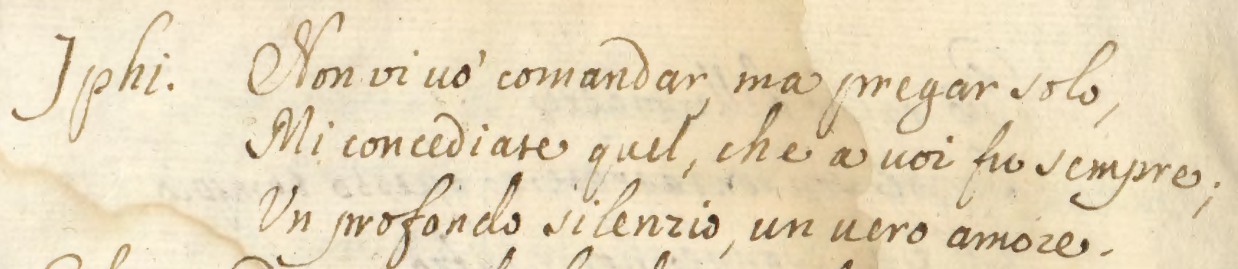 Iphi. Non vi uo' comandar, ma pregar solo,
Mi concediate quel, che a uoi fu sempre;
Vn profondo silenzio, un uero amore.